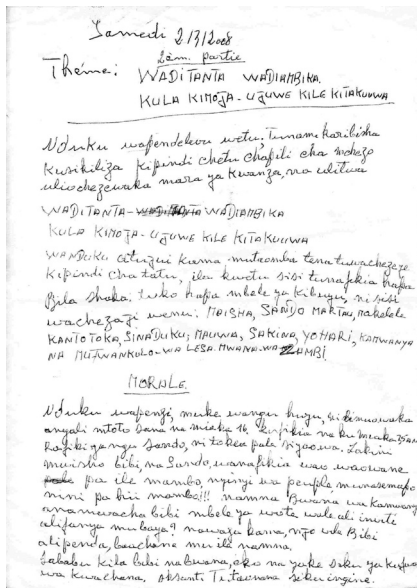 Samedi 2/3/2008
2èm. partie
Thème: WADITANTA WADIAMBIKA.
KULA KIMOJA - UJUWE KILE KITAKUUWA
Nduku wapendelevu wetu, Tunamukaribisha
Kusikiliza kipindi chetu chapiti cha mchezo
ulio chezewaka mara ya kwanza, na ulitwa
WADITANTA - WADIAMBIKA
KULA KIMOJA - UJUWE KILE KITAKUUWA
WANDUKU atujui kama mutuomba tena tuwachezeze
Kipindi cha tatu, ila kwetu sisi tunafikia hapa
Bila shaka. tuko hapa mbele ya Kibuyu, ni sisi
wachezaji wenu: MAISHA, SANDO MARTAU, makelele
KANTOTOKA, SINADUKU, MAUWA, SAKINA, YOHARI, KAMWANYA
NA MUTWANKULO - WA LESA MWANA - WA ZAMBI
MORALE.
Nduku wapenzi, muke wangu huyu,
anyali mtoto sana na miaka 16 kufikia na ku miaka 35
Rafiki yangu Sando, ni tokea pale siyaowa, Lakini
muisho bibi, na Sando, wanafikia wao waowane
pa ile mambo, nyingi wa peuple, munasemako
nini pa hii mambo!!! namna Bwana wa Kamwanya
anamwacha bibi mbele ya wote wale ali inviti
alifanya mubaya? nawaza kama, njo vile Bibi
alipenda, baachane mu ile namna.
Sababu kila bibi na bwana, eko na yake siku ya kufa
wa kwachana, aksanti Tutaonana siku ingine.